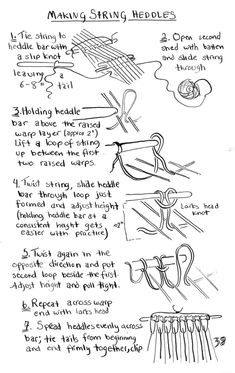 MAKING STRING HEDDLES
1. Tie string to
heddle bar with
a slip knot
leaving a
6-8" tail
2. Open second
shed with batten
and slide string
through
3. Holding heddle
bar above the
raised
warp layer (approx 2")
Lift a loop of string
up between the first
two raised warps.
4. Twist string, slide heddle
bar through loop just
formed and adjust height
(holding heddle bar at a
consistent height gets
easier with practice)
<2"
Larks head
knot
5. Twist again in the
opposite direction and put
second loop beside the first.
Adjust height and pull tight.
6. Repeat across warp
end with larks head
7. Spread heddles evenly across
bar; tie tails from beginning
and end firmly together, clip
38